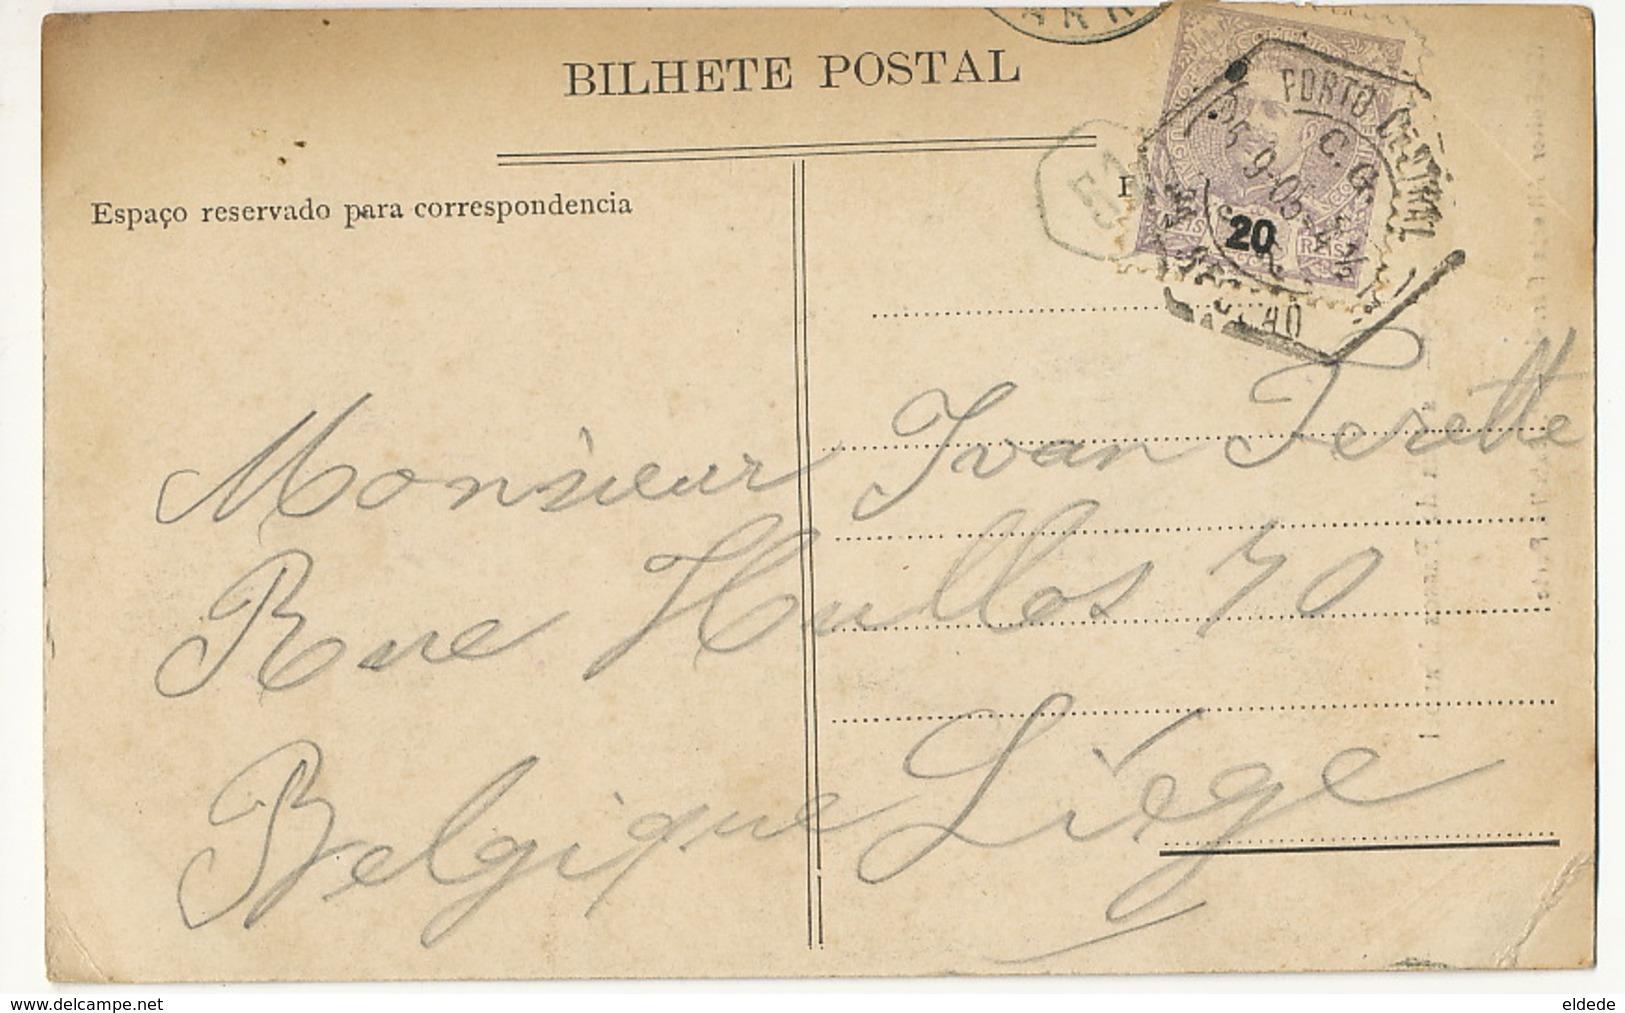 BILHETE POSTAL
Espaço reservado para correspondencia
PORTO CENTRAL
C. G.
25 9-05
51
20
REIS
Monsieur Ivan Terette
Rue Hullos 70
Belgique Liége
www.delcampe.net
eldede